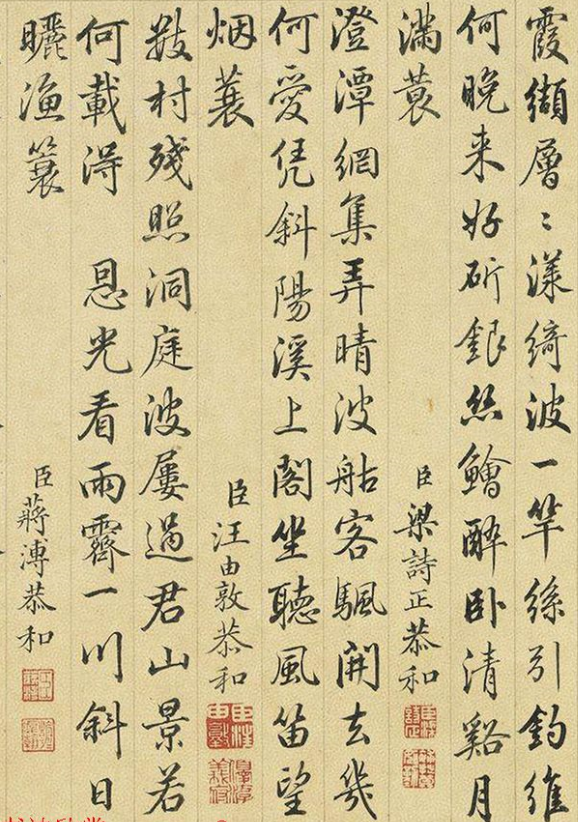 霞纈層〻漾綺波一竿絲引釣維
何晚来好斫銀絲鱠醉卧清谿月
滿蓑
臣梁詩正恭和
澄潭網集弄晴波客颿開去幾
何愛凭斜陽溪上閣坐聽風笛望
烟蓑
臣汪由敦恭和
數村殘照洞庭波屢過君山景若
何載得 恩光看雨霽一川斜日
曬漁蓑
臣蔣溥恭和